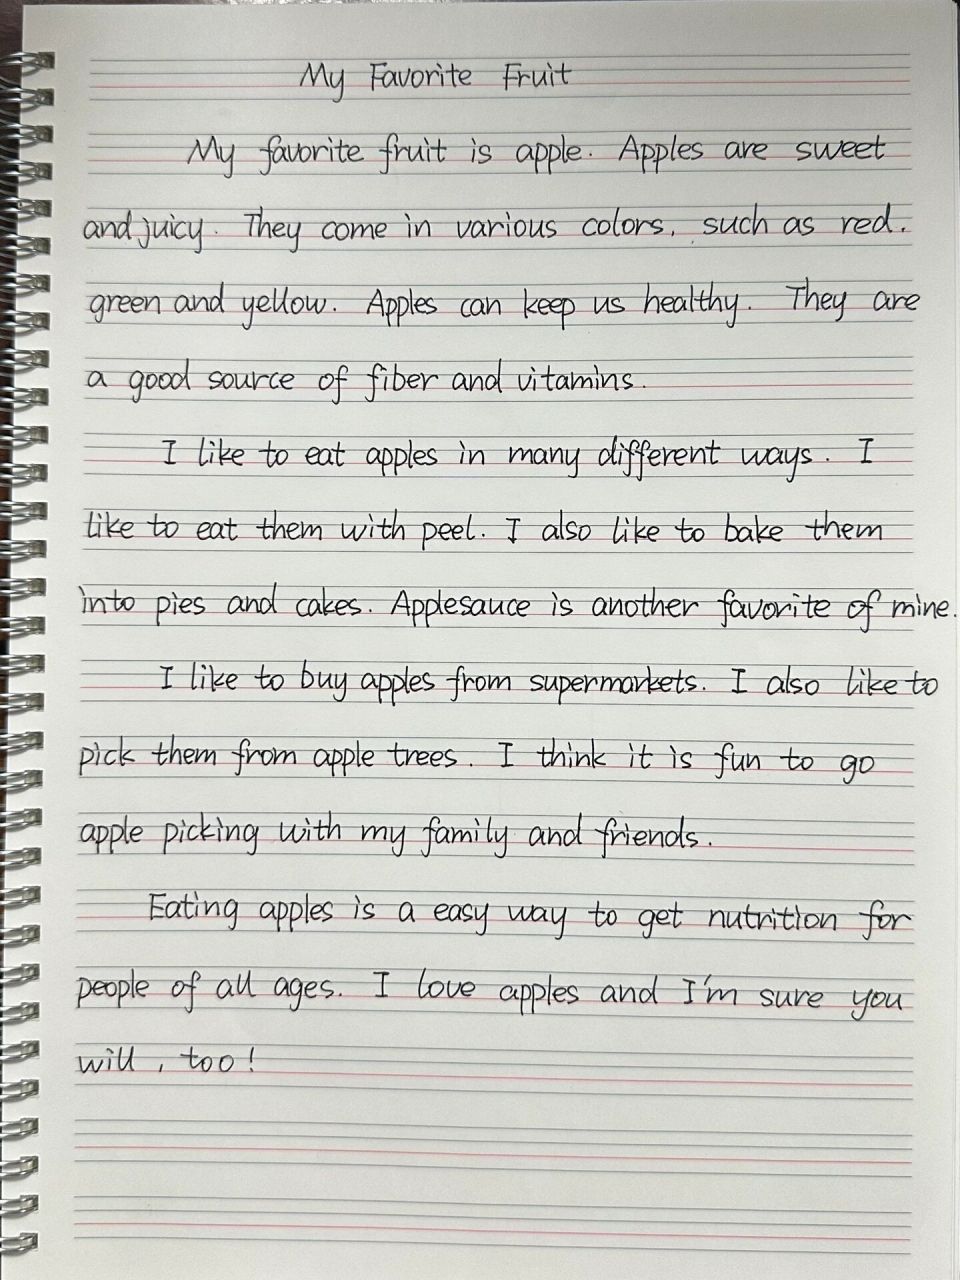 My Favorite Fruit
My favorite fruit is apple. Apples are sweet
and juicy. They come in various colors, such as red.
green and yellow. Apples can keep us healthy. They are
a good source of fiber and vitamins.
I like to eat apples in many different ways. I
like to eat them with peel. I also like to bake them
into pies and cakes. Applesauce is another favorite of mine.
I like to buy apples from supermarkets. I also like to
pick them from apple trees. I think it is fun to go
apple picking with my family and friends.
Eating apples is a easy way to get nutrition for
people of all ages. I love apples and I'm sure you
will, too!